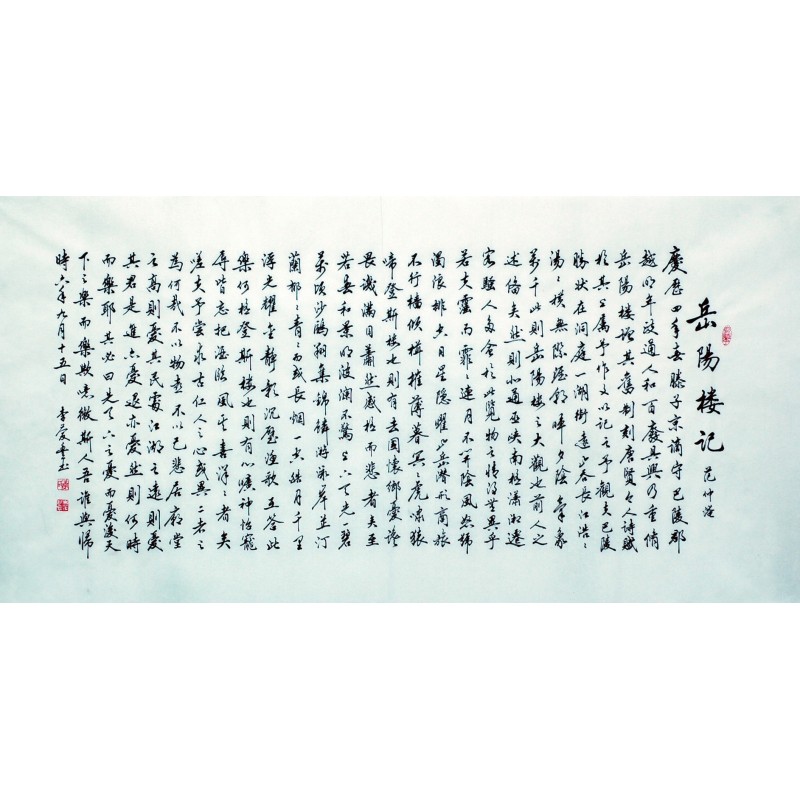 岳陽楼记
范仲淹
慶歷四年春滕子京謫守巴陵郡
越明年政通人和百廢具興乃重脩
岳陽樓增其舊制刻唐賢今人詩賦
於其上属予作文以记之予觀夫巴陵
勝状在洞庭一湖銜遠山吞長江浩〻
湯〻横無際涯朝暉夕陰氣象
萬千此則岳陽樓之大觀也前人之
述備矣然則北通巫峡南極瀟湘遷
客騷人多會於此覽物之情得無異乎
若夫霪雨霏〻連月不開陰風怒號
濁浪排空日星隐曜山岳潛形商旅
不行檣傾楫摧薄暮冥〻虎嘯猿
啼登斯樓也則有去国懷鄉憂讒
畏譏滿目蕭然感極而悲者矣至
若春和景明波瀾不驚上下天光一碧
萬頃沙鷗翔集錦鳞游泳岸芷汀
蘭郁〻青〻而或長烟一空皓月千里
浮光耀金静影沉璧渔歌互答此
樂何極登斯樓也則有心曠神怡寵
辱皆忘把酒臨風其喜洋〻者矣
嗟夫予嘗求古仁人之心或異二者之
為何哉不以物喜不以己悲居廟堂
之高則憂其民處江湖之遠則憂
其君是進亦憂退亦憂然則何時
而樂耶其必曰先天下之憂而憂後天
下之樂而樂歟噫微斯人吾誰與歸
時六年九月十五日